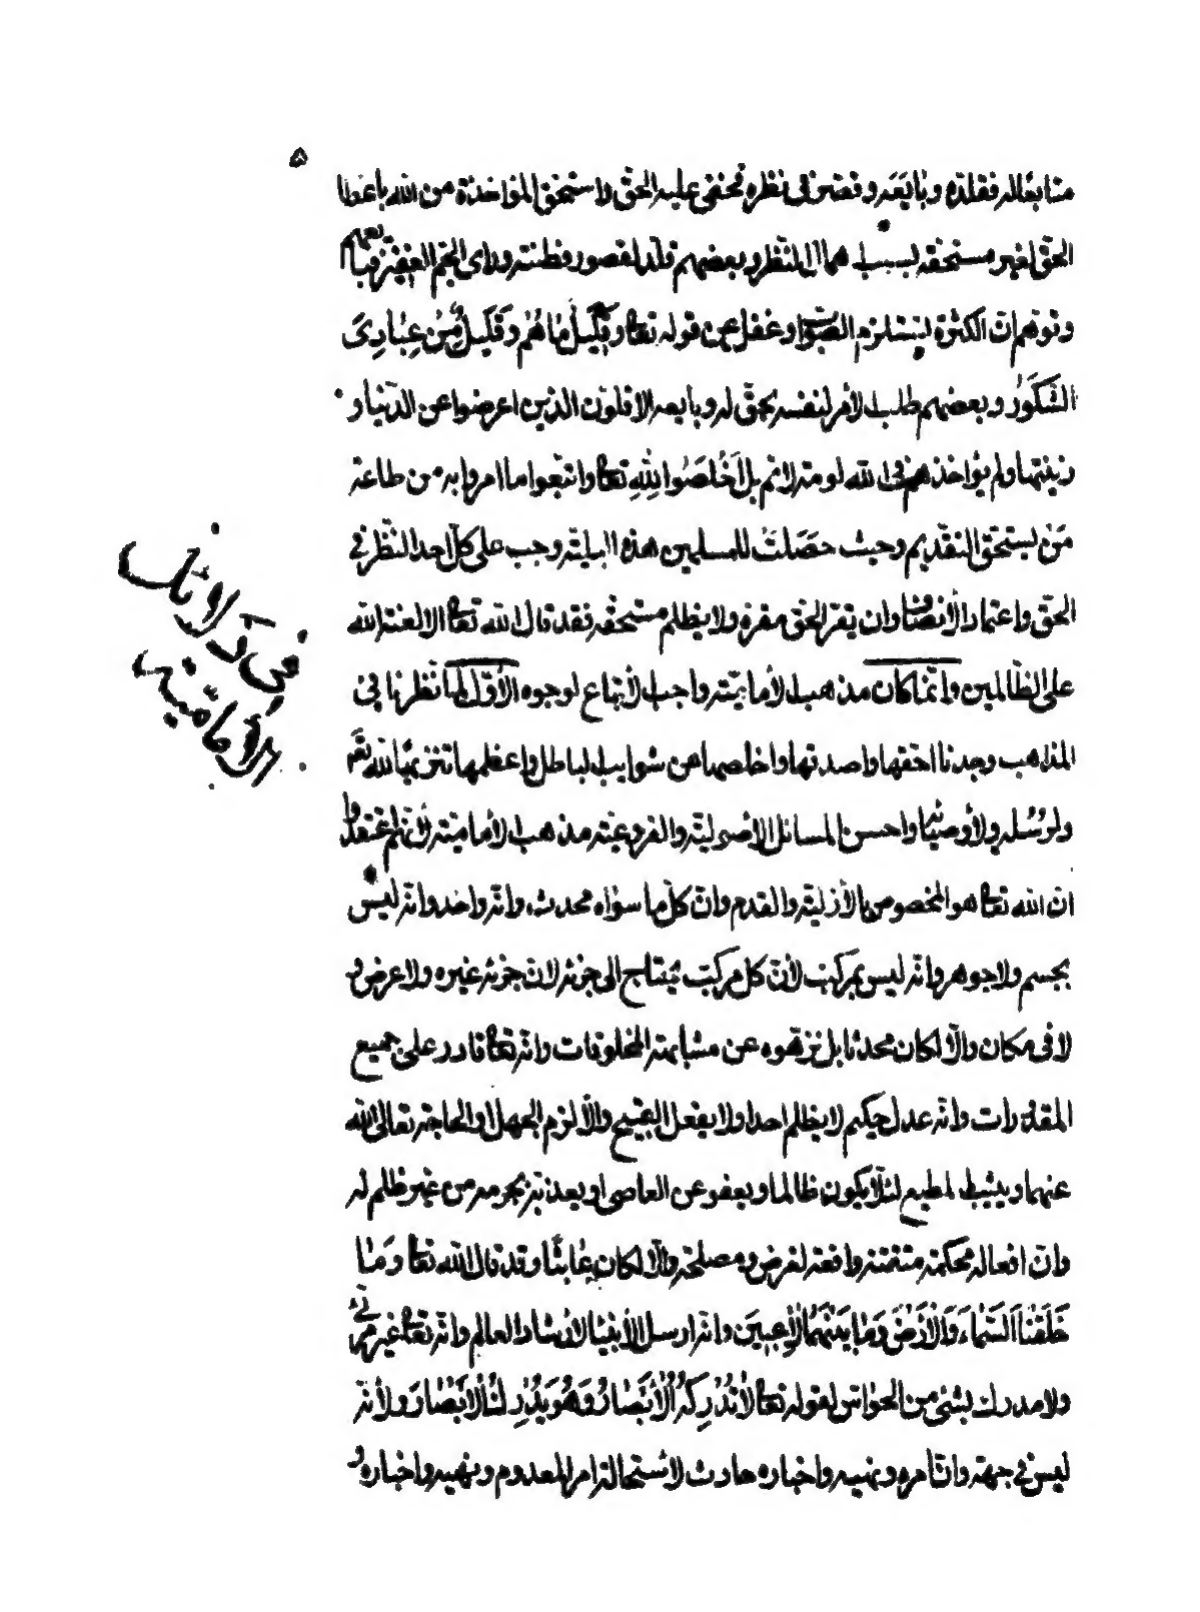 ٥
متابعا له فقلده وبايعه وقصر في نظره فخفى عليه الحق واستحق المؤاخذة من الله باعطا
الحق لغير مستحقه بسبب اهمال النظر وبعضهم قلد لقصور فطنته وراى الجم الغفير فبايعهم
وتوهم ان الكثرة يستلزم الصواب وغفل عن قوله تعالى وقليل ما هم وقليل من عبادى
الشكور وبعضهم طلب الامر لنفسه بحق له وبايعه الاقلون الذين اعرضوا عن الدنيا و
زينتها ولم يؤاخذهم في الله لومة لائم بل اخلصوا لله تعالى واتبعوا ما امروا به من طاعة
من يستحق التقديم وحيث حصلت للمسلمين هذه البلية وجب على كل احد النظر في
الحق واعتماد الانصاف وان يقر الحق مقره ولا يظلم مستحقه فقد قال الله تعالى الا لعنة الله
على الظالمين وانما كان مذهب الامامية واجب الاتباع لوجوه الاول لما نظرنا في
المذاهب وجدنا احقها واصدقها واخلصها من شوايب الباطل واعظمها تنزيها لله تعالى
ولرسله ولاوصيائه واحسن المسائل الاصولية والفروعية مذهب الامامية لانهم اعتقدوا
ان الله تعالى هو المخصوص بالازلية والقدم وان كل ما سواه محدث وانه واحد وانه ليس
بجسم ولا جوهر وانه ليس بمركب لان كل مركب يحتاج الى جزئه لان جزئه غيره ولا عرض و
لا في مكان والا لكان محدثا بل نزهوه عن مشابهة المخلوقات وانه تعالى قادر على جميع
المقدورات وانه عدل حكيم لا يظلم احدا ولا يفعل القبيح والا لزم الجهل او الحاجة تعالى الله
عنهما ويثيب المطيع لئلا يكون ظالما ويعفو عن العاصى او يعذبه بجرمه من غير ظلم له
وان افعاله محكمة متقنة واقعة لغرض ومصلحة والا لكان عابثا وقد قال الله تعالى وما
خلقنا السماء والارض وما بينهما لاعبين وانه ارسل الانبيا لارشاد العالم وانه تعالى غير مرئي
ولا مدرك بشئ من الحواس لقوله تعالى لا تدركه الابصار وهو يدرك الابصار ولانه
ليس في جهة وان امره ونهيه واخباره حادث لاستحالة امر المعدوم ونهيه واخباره و
في دلائل
الامامية